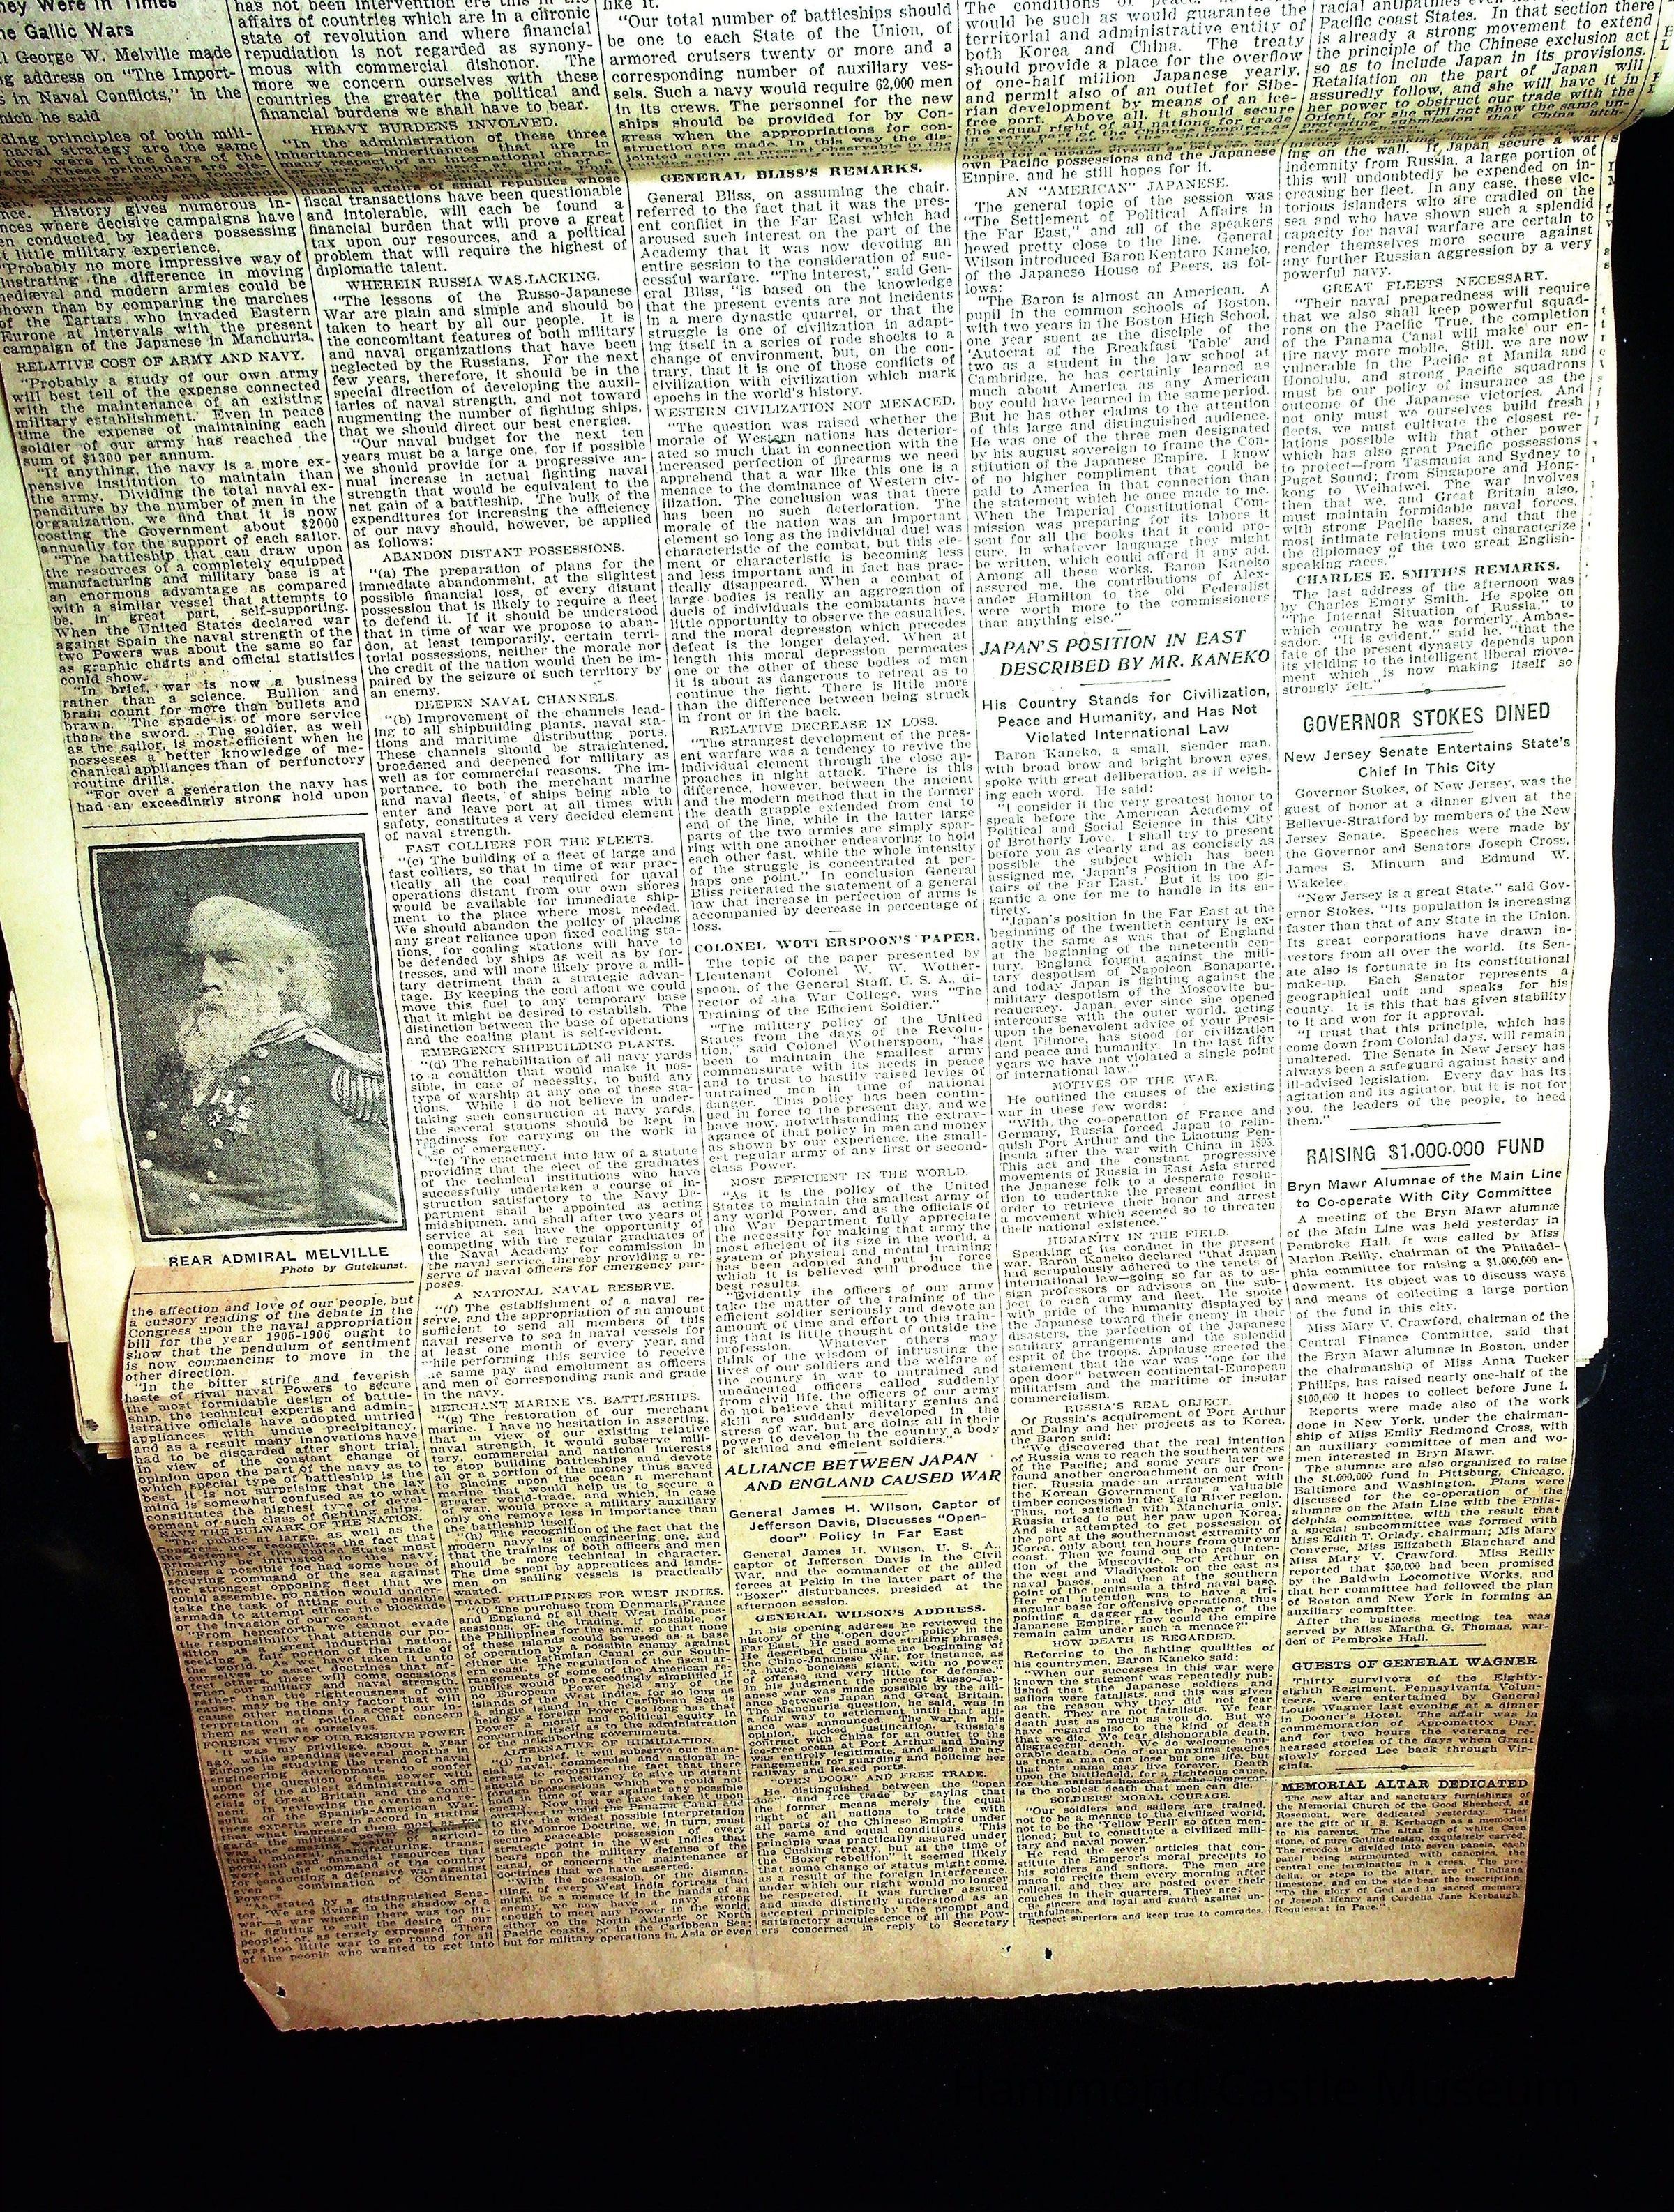 hey Were in Times
he Gallic Wars
George W. Melville made
ng address on "The Import-
s in Naval Conflicts," in the
hich he said
ding principles of both mili-
naval strategy are the same
they were in the days of the
nce. History gives numerous in-
nces where decisive campaigns have
en conducted by leaders possessing
t little military experience.
"Probably no more impressive way of
lustrating the difference in moving
mediæval and modern armies could be
hown than by comparing the marches
of the Tartars who invaded Eastern
Europe at intervals with the present
campaign of the Japanese in Manchuria.
RELATIVE COST OF ARMY AND NAVY.
"Probably a study of our own army
will best tell of the expense connected
with the maintenance of an existing
military establishment. Even in peace
time the expense of maintaining each
soldier of our army has reached the
sum of $1300 per annum.
"If anything, the navy is a more ex-
pensive institution to maintain than
the army. Dividing the total naval ex-
penditure by the number of men in the
organization, we find that it is now
costing the Government about $2000
annually for the support of each sailor.
"The battleship that can draw upon
the resources of a completely equipped
manufacturing and military base is at
an enormous advantage as compared
with a similar vessel that attempts to
be, in great part, self-supporting.
When the United States declared war
against Spain the naval strength of the
two Powers was about the same so far
as graphic charts and official statistics
could show.
"In brief, war is now a business
rather than a science. Bullion and
brain count for more than bullets and
brawn. The spade is of more service
than the sword. The soldier, as well
as the sailor, is most efficient when he
possesses a better knowledge of me-
chanical appliances than of perfunctory
routine drills.
"For over a generation the navy has
had an exceedingly strong hold upon
REAR ADMIRAL MELVILLE
Photo by Gutekunst.
the affection and love of our people, but
a cursory reading of the debate in the
Congress upon the naval appropriation
bill for the year 1905-1906 ought to
show that the pendulum of sentiment
is now commencing to move in the
other direction.
"In the bitter strife and feverish
haste of rival naval Powers to secure
the most formidable design of battle-
ship, the technical experts and admin-
istrative officials have adopted untried
appliances with undue precipitancy,
and as a result many innovations have
had to be discarded after short trial.
In view of the constant change of
opinion upon the part of the navy as to
which special type of battleship is the
best, it is not surprising that the lay
mind is somewhat confused as to what
constitutes the highest type of devel-
opment of such class of fighting ships.
NAVY THE BULWARK OF THE NATION.
"The public at large, as well as the
Congress, now recognizes the fact that
the defense of the United States must
primarily be intrusted to the navy.
Unless a possible foe had some hope of
securing command of the sea against
the strongest opposing fleet that we
could assemble, no nation would under-
take the task of fitting out a possible
armada to attempt either the blockade
or the invasion of our coast.
"From henceforth we cannot evade
the responsibility that attends our po-
sition as a great industrial nation,
seeking a fair portion of the trade of
the world.
FOREIGN VIEW OF OUR RESERVE POWER
"It was my privilege, about a year
ago, while spending several months in
Europe in studying the trend of naval
engineering development, to confer
upon the question of sea power with
some of the ablest administrative offi-
cials of Great Britain and the Conti-
nent. In reviewing the events and re-
sults of the Spanish-American War,
these experts were in accord in stating
that what impressed them most as re-
"As stated by a distinguished Sena-
tor, 'We are living in the shadow of a
war—a war wherein there was too lit-
tle fighting to suit the desire of our
people'; or, as tersely expressed, 'There
was too little war to go round for all
of the people who wanted to get into
has not been intervention ere this in the
affairs of countries which are in a chronic
state of revolution and where financial
repudiation is not regarded as synony-
mous with commercial dishonor. The
more we concern ourselves with these
countries the greater the political and
financial burdens we shall have to bear.
HEAVY BURDENS INVOLVED.
"In the administration of these three
inheritances—inheritances that are in
many respect of an international charac-
financial affairs of small republics whose
fiscal transactions have been questionable
and intolerable, will each be found a
financial burden that will prove a great
tax upon our resources, and a political
problem that will require the highest of
diplomatic talent.
WHEREIN RUSSIA WAS LACKING.
"The lessons of the Russo-Japanese
War are plain and simple and should be
taken to heart by all our people. It is
the concomitant features of both military
and naval organizations that have been
neglected by the Russians. For the next
few years, therefore, it should be in the
special direction of developing the auxil-
iaries of naval strength, and not toward
augmenting the number of fighting ships,
that we should direct our best energies.
"Our naval budget for the next ten
years must be a large one, for if possible
we should provide for a progressive an-
nual increase in actual fighting naval
strength that would be equivalent to the
net gain of a battleship. The bulk of the
expenditures for increasing the efficiency
of our navy should, however, be applied
as follows:
ABANDON DISTANT POSSESSIONS.
"(a) The preparation of plans for the
immediate abandonment, at the slightest
possible financial loss, of every distant
possession that is likely to require a fleet
to defend it. If it should be understood
that in time of war we propose to aban-
don, at least temporarily, certain terri-
torial possessions, neither the morale nor
the credit of the nation would then be im-
paired by the seizure of such territory by
an enemy.
DEEPEN NAVAL CHANNELS.
"(b) Improvement of the channels lead-
ing to all shipbuilding plants, naval sta-
tions and maritime distributing ports.
These channels should be straightened,
broadened and deepened for military as
well as for commercial reasons. The im-
portance, to both the merchant marine
and naval fleets, of ships being able to
enter and leave port at all times with
safety, constitutes a very decided element
of naval strength.
FAST COLLIERS FOR THE FLEETS.
"(c) The building of a fleet of large and
fast colliers, so that in time of war prac-
tically all the coal required for naval
operations distant from our own shores
would be available for immediate ship-
ment to the place where most needed.
We should abandon the policy of placing
any great reliance upon fixed coaling sta-
tions, for coaling stations will have to
be defended by ships as well as by for-
tresses, and will more likely prove a mili-
tary detriment than a strategic advan-
tage. By keeping the coal afloat we could
move this fuel to any temporary base
that it might be desired to establish. The
distinction between the base of operations
and the coaling plant is self-evident.
EMERGENCY SHIPBUILDING PLANTS.
"(d) The rehabilitation of all navy yards
to a condition that would make it pos-
sible, in case of necessity, to build any
type of warship at any one of these sta-
tions. While I do not believe in under-
taking such construction at navy yards,
the several stations should be kept in
readiness for carrying on the work in
case of emergency.
"(e) The enactment into law of a statute
providing that the elect of the graduates
of the technical institutions who have
successfully undertaken a course of in-
struction satisfactory to the Navy De-
partment shall be appointed as acting
midshipmen, and shall after two years of
service at sea have the opportunity of
competing with the regular graduates of
the Naval Academy for commission in
the naval service, thereby providing a re-
serve of naval officers for emergency pur-
poses.
A NATIONAL NAVAL RESERVE.
"(f) The establishment of a naval re-
serve, and the appropriation of an amount
sufficient to send all members of this
naval reserve to sea in naval vessels for
at least one month of every year, and
while performing this service to receive
the same pay and emolument as officers
and men of corresponding rank and grade
in the navy.
MERCHANT MARINE VS. BATTLESHIPS.
"(g) The restoration of our merchant
marine. I have no hesitation in asserting,
that in view of our existing relative
naval strength, it would subserve mili-
tary, commercial and national interests
to stop building battleships and devote
all or a portion of the money thus saved
to placing upon the ocean a merchant
marine that would help us to secure a
greater world-trade, and which, in case
of war, would prove a military auxiliary
only one remove less in importance than
the battleship itself.
"(h) The recognition of the fact that the
modern navy is an engineering one, and
that the training of both officers and men
should be more technical in character.
The time spent by apprentices and lands-
men sailing vessels is practically
wasted.
TRADE PHILIPPINES FOR WEST INDIES.
"(i) The purchase from Denmark, France
and England of all their West India pos-
sessions, or the trading, if possible, of
the Philippines for the same, so that none
of these islands could be used as a base
of operation by a possible enemy against
either the Isthmian Canal or our South-
ern coast. The regulation of the fiscal ar-
rangements of some of the American re-
publics would be exceedingly simplified if
no European Power held any of the
islands of the West Indies, for so long as
a single island in the Caribbean Sea is
held by a foreign Power, so long has that
Power a moral and political equity in
concerning itself as to the administration
of the neighboring governments.
ALTERNATIVE OF HUMILIATION.
"(j) In brief, it will subserve our finan-
cial, naval, commercial and national in-
terests to recognize the fact that there
should be no hesitancy to give up distant
foreign possessions which we could not
hold in time of war against any possible
enemy. Now that we have taken it upon
ourselves to build the Panama Canal and
to give the widest possible interpretation
to the Monroe Doctrine, we, in turn, must
secure peaceable possession of every
strategic point in the West Indies that
bears upon the military defense of the
canal, or concerns the maintenance of
doctrines that we have asserted.
"With the possession, or the disman-
tling, of every West India fortress that
might be a menace if in the hands of an
enemy, we now have a navy strong
enough to meet any Power in the world,
either on the North Atlantic or North
Pacific coasts, or in the Caribbean Sea;
but for military operations in Asia or even
like it.
"Our total number of battleships should
be one to each State of the Union, of
armored cruisers twenty or more and a
corresponding number of auxiliary ves-
sels. Such a navy would require 62,000 men
in its crews. The personnel for the new
ships should be provided for by Con-
gress when the appropriations for con-
struction are made. In this way the dis-
GENERAL BLISS'S REMARKS.
General Bliss, on assuming the chair,
referred to the fact that it was the pres-
ent conflict in the Far East which had
aroused such interest on the part of the
Academy that it was now devoting an
entire session to the consideration of suc-
cessful warfare. "The interest," said Gen-
eral Bliss, "is based on the knowledge
that the present events are not incidents
in a mere dynastic quarrel, or that the
struggle is one of civilization in adapt-
ing itself in a series of rude shocks to a
change of environment, but, on the con-
trary, that it is one of those conflicts of
civilization with civilization which mark
epochs in the world's history.
WESTERN CIVILIZATION NOT MENACED.
"The question was raised whether the
morale of Western nations has deterior-
ated so much that in connection with the
increased perfection of firearms we need
apprehend that a war like this one is a
menace to the dominance of Western civ-
ilization. The conclusion was that there
has been no such deterioration. The
morale of the nation was an important
element so long as the individual duel was
characteristic of the combat, but this ele-
ment or characteristic is becoming less
and less important and in fact has prac-
tically disappeared. When a combat of
large bodies is really an aggregation of
duels of individuals the combatants have
little opportunity to observe the casualties,
and the moral depression which precedes
defeat is the longer delayed. When at
length this moral depression permeates
one or the other of these bodies of men
it is about as dangerous to retreat as to
continue the fight. There is little more
than the difference between being struck
in front or in the back.
RELATIVE DECREASE IN LOSS.
"The strangest development of the pres-
ent warfare was a tendency to revive the
individual element through the close ap-
proaches in night attack. There is this
difference, however, between the ancient
and the modern method that in the former
the death grapple extended from end to
end of the line, while in the latter large
parts of the two armies are simply spar-
ring with one another endeavoring to hold
each other fast, while the whole intensity
of the struggle is concentrated at per-
haps one point." In conclusion General
Bliss reiterated the statement of a general
law that increase in perfection of arms is
accompanied by decrease in percentage of
loss.
COLONEL WOTHERSPOON'S PAPER.
The topic of the paper presented by
Lieutenant Colonel W. W. Wother-
spoon, of the General Staff, U. S. A., di-
rector of the War College, was "The
Training of the Efficient Soldier."
"The military policy of the United
States from the days of the Revolu-
tion," said Colonel Wotherspoon, "has
been to maintain the smallest army
commensurate with its needs in peace
and to trust to hastily raised levies of
untrained men in time of national
danger. This policy has been contin-
ued in force to the present day, and we
have now, notwithstanding the extrav-
agance of that policy in men and money
as shown by our experience, the small-
est regular army of any first or second-
class Power.
MOST EFFICIENT IN THE WORLD.
"As it is the policy of the United
States to maintain the smallest army of
any world Power, and as the officials of
the War Department fully appreciate
the necessity for making that army the
most efficient of its size in the world, a
system of physical and mental training
has been adopted and put in force
which it is believed will produce the
best results.
"Evidently the officers of our army
take the matter of the training of the
efficient soldier seriously and devote an
amount of time and effort to this train-
ing that is little thought of outside the
profession. Whatever others may
think of the wisdom of intrusting the
lives of our soldiers and the welfare of
the country in war to untrained and
uneducated officers called suddenly
from civil life, the officers of our army
do not believe that military genius and
skill are suddenly developed in the
stress of war, but are doing all in their
power to develop in the country a body
of skilled and efficient soldiers."
ALLIANCE BETWEEN JAPAN
AND ENGLAND CAUSED WAR
General James H. Wilson, Captor of
Jefferson Davis, Discusses "Open-
door" Policy in Far East
General James H. Wilson, U. S. A.,
captor of Jefferson Davis in the Civil
War, and the commander of the allied
forces at Pekin in the latter part of the
"Boxer" disturbances, presided at the
afternoon session.
GENERAL WILSON'S ADDRESS.
In his opening address he reviewed the
history of the "open door" policy in the
Far East. He used some striking phrases.
He described China at the beginning of
the Chino-Japanese War, for instance, as
"a huge, boneless giant, with no power
of offense, and very little for defense."
In his judgment the present Russo-Jap-
anese war was made possible by the alli-
ance between Japan and Great Britain.
The Manchuria question, he said, was in
a fair way to settlement until that alli-
ance was announced. The war, in his
opinion, lacked justification. Russia's
contract with China for an outlet to the
ice-free ocean at Port Arthur and Dalny
was entirely legitimate, and also her ar-
rangements for guarding and policing her
railway and leased ports.
"OPEN DOOR" AND FREE TRADE.
He distinguished between the "open
door" and "free trade" by saying that
the former means merely the equal
right of all nations to trade with
all parts of the Chinese Empire under
the same and equal conditions. This
principle was practically assured under
the Cushing treaty, but at the time of
the "Boxer rebellion" it seemed likely
that some change of status might come,
as a result of the foreign interference,
under which our right would no longer
be respected. It was further assured
and made distinctly understood as an
accepted principle by the prompt and
satisfactory acquiescence of all the Pow-
ers concerned in reply to Secretary
The conditions of peace,
would be such as would guarantee the
territorial and administrative entity of
both Korea and China. The treaty
should provide a place for the overflow
of one-half million Japanese yearly,
and permit also of an outlet for Sibe-
rian development by means of an ice-
free port. Above all, it should secure
the equal right of all nations for trade
in every part of the Chinese Empire, as
own Pacific possessions and the Japanese
Empire, and he still hopes for it.
AN "AMERICAN" JAPANESE.
The general topic of the session was
"The Settlement of Political Affairs in
the Far East," and all of the speakers
hewed pretty close to the line. General
Wilson introduced Baron Kentaro Kaneko,
of the Japanese House of Peers, as fol-
lows:
"The Baron is almost an American. A
pupil in the common schools of Boston,
with two years in the Boston High School,
one year spent as the disciple of the
'Autocrat of the Breakfast Table' and
two as a student in the law school at
Cambridge, he has certainly learned as
much about America as any American
boy could have learned in the same period.
But he has other claims to the attention
of this large and distinguished audience.
He was one of the three men designated
by his august sovereign to frame the Con-
stitution of the Japanese Empire. I know
of no higher compliment that could be
paid to America in that connection than
the statement which he once made to me.
When the Imperial Constitutional Com-
mission was preparing for its labors it
sent for all the books that it could pro-
cure, in whatever language they might
be written, which could afford it any aid.
Among all these works, Baron Kaneko
assured me, the contributions of Alex-
ander Hamilton to the old Federalist
were worth more to the commissioners
than anything else."
JAPAN'S POSITION IN EAST
DESCRIBED BY MR. KANEKO
His Country Stands for Civilization,
Peace and Humanity, and Has Not
Violated International Law
Baron Kaneko, a small, slender man,
with broad brow and bright brown eyes,
spoke with great deliberation, as if weigh-
ing each word. He said:
"I consider it the very greatest honor to
speak before the American Academy of
Political and Social Science in this City
of Brotherly Love. I shall try to present
before you as clearly and as concisely as
possible the subject which has been
assigned me, 'Japan's Position in the Af-
fairs of the Far East.' But it is too gi-
gantic a one for me to handle in its en-
tirety.
"Japan's position in the Far East at the
beginning of the twentieth century is ex-
actly the same as was that of England
at the beginning of the nineteenth cen-
tury. England fought against the mili-
tary despotism of Napoleon Bonaparte,
and today Japan is fighting against the
military despotism of the Moscovite bu-
reaucracy. Japan, ever since she opened
intercourse with the outer world, acting
upon the benevolent advice of your Presi-
dent Filmore, has stood for civilization
and peace and humanity. In the last fifty
years we have not violated a single point
of international law."
MOTIVES OF THE WAR.
He outlined the causes of the existing
war in these few words:
"With the co-operation of France and
Germany, Russia forced Japan to relin-
quish Port Arthur and the Liaotung Pen-
insula after the war with China in 1895.
This act and the constant progressive
movements of Russia in East Asia stirred
the Japanese folk to a desperate resolu-
tion to undertake the present conflict in
order to retrieve their honor and arrest
a movement which seemed so to threaten
their national existence."
HUMANITY IN THE FIELD.
Speaking of its conduct in the present
war, Baron Kaneko declared "that Japan
had scrupulously adhered to the tenets of
international law—going so far as to as-
sign professors or advisors on the sub-
ject to each army and fleet. He spoke
with pride of the humanity displayed by
the Japanese toward their enemy in their
disasters, the perfection of the Japanese
sanitary arrangements and the splendid
esprit of the troops. Applause greeted the
statement that the war was "one for the
open door" between continental-European
militarism and the maritime or insular
commercialism.
RUSSIA'S REAL OBJECT.
Of Russia's acquirement of Port Arthur
and Dalny and her projects as to Korea,
the Baron said:
"We discovered that the real intention
of Russia was to reach the southern waters
of the Pacific; and some years later we
found another encroachment on our fron-
tier. Russia made an arrangement with
the Korean Government for a valuable
timber concession in the Yalu River region.
Thus, not satisfied with Manchuria only,
Russia tried to put her paw upon Korea.
And she attempted to get possession of
the port at the southernmost extremity of
Korea, only about ten hours from our own
coast. Then we found out the real inten-
tion of the Muscovite. Port Arthur on
the west and Vladivostok on the east as
naval bases, and then at the southern
point of the peninsula a third naval base.
Her real intention was to have a tri-
angular base for offensive operations, thus
pointing a dagger at the heart of the
Japanese Empire. How could the empire
remain calm under such a menace?"
HOW DEATH IS REGARDED.
Referring to the fighting qualities of
his countrymen, Baron Kaneko said:
"When our successes in this war were
known the statement was repeatedly pub-
lished that the Japanese soldiers and
sailors were fatalists, and this was given
as the reason why they did not fear
death. They are not fatalists. We fear
death just as much as you do. But we
have regard also to the kind of death
that we die. We fear dishonorable death,
disgraceful death. We do welcome hon-
orable death. One of our maxims teaches
us that a man can lose but one life, but
that his name may live forever. Death
upon the battlefield, for a righteous cause,
for the nation's honor, for the Emperor,
is the noblest death that men can die.
SOLDIERS' MORAL COURAGE.
"Our soldiers and sailors are trained,
not to be a menace to the civilized world,
not to be the 'Yellow Peril' so often men-
tioned; but to constitute a civilized mili-
tary and naval power."
He read the seven articles that con-
stitute the Emperor's moral precepts to
his soldiers and sailors. The men are
made to recite them every morning after
rollcall, and they are posted over their
couches in their quarters. They are:
Be sincere and loyal and guard against un-
truthfulness.
Respect superiors and keep true to comrades.
racial antipathies
Pacific coast States. In that section there
is already a strong movement to extend
the principle of the Chinese exclusion act
so as to include Japan in its provisions.
Retaliation on the part of Japan will
assuredly follow, and she will have it in
her power to obstruct our trade with the
Orient, for she will not show the same un-
protesting submission that China hith-
ing on the wall. If Japan secure a war
indemnity from Russia, a large portion of
this will undoubtedly be expended on in-
creasing her fleet. In any case, these vic-
torious islanders who are cradled on the
sea and who have shown such a splendid
capacity for naval warfare are certain to
render themselves more secure against
any further Russian aggression by a very
powerful navy.
GREAT FLEETS NECESSARY.
"Their naval preparedness will require
that we also shall keep powerful squad-
rons on the Pacific. True, the completion
of the Panama Canal will make our en-
tire navy more mobile. Still, we are now
vulnerable in the Pacific at Manila and
Honolulu, and strong Pacific squadrons
must be our policy of insurance as the
outcome of the Japanese victories. And
not only must we ourselves build fresh
fleets, we must cultivate the closest re-
lations possible with that other power
which has also great Pacific possessions
to protect—from Tasmania and Sydney to
Puget Sound; from Singapore and Hong-
kong to Weihaiwei. The war involves
then that we, and Great Britain also,
must maintain formidable naval forces,
with strong Pacific bases, and that the
most intimate relations must characterize
the diplomacy of the two great English-
speaking races."
CHARLES E. SMITH'S REMARKS.
The last address of the afternoon was
by Charles Emory Smith. He spoke on
"The Internal Situation of Russia," to
which country he was formerly Ambas-
sador. "It is evident," said he, "that the
fate of the present dynasty depends upon
its yielding to the intelligent liberal move-
ment which is now making itself so
strongly felt."
GOVERNOR STOKES DINED
New Jersey Senate Entertains State's
Chief In This City
Governor Stokes, of New Jersey, was the
guest of honor at a dinner given at the
Bellevue-Stratford by members of the New
Jersey Senate. Speeches were made by
the Governor and Senators Joseph Cross,
James S. Minturn and Edmund W.
Wakelee.
"New Jersey is a great State," said Gov-
ernor Stokes. "Its population is increasing
faster than that of any State in the Union.
Its great corporations have drawn in-
vestors from all over the world. Its Sen-
ate also is fortunate in its constitutional
make-up. Each Senator represents a
geographical unit and speaks for his
county. It is this that has given stability
to it and won for it approval.
"I trust that this principle, which has
come down from Colonial days, will remain
unaltered. The Senate in New Jersey has
always been a safeguard against hasty and
ill-advised legislation. Every day has its
agitation and its agitator, but it is not for
you, the leaders of the people, to heed
them."
RAISING $1,000,000 FUND
Bryn Mawr Alumnae of the Main Line
to Co-operate With City Committee
A meeting of the Bryn Mawr alumnæ
of the Main Line was held yesterday in
Pembroke Hall. It was called by Miss
Marion Reilly, chairman of the Philadel-
phia committee for raising a $1,000,000 en-
dowment. Its object was to discuss ways
and means of collecting a large portion
of the fund in this city.
Miss Mary V. Crawford, chairman of the
Central Finance Committee, said that
the Bryn Mawr alumnæ in Boston, under
the chairmanship of Miss Anna Tucker
Phillips, has raised nearly one-half of the
$100,000 it hopes to collect before June 1.
Reports were made also of the work
done in New York, under the chairman-
ship of Miss Emily Redmond Cross, with
an auxiliary committee of men and wo-
men interested in Bryn Mawr.
The alumnæ are also organized to raise
the $1,000,000 fund in Pittsburg, Chicago,
Baltimore and Washington. Plans were
discussed for the co-operation of the
alumnæ on the Main Line with the Phila-
delphia committee, with the result that
a special subcommittee was formed with
Miss Edith T. Orlady, chairman; Mis Mary
Converse, Miss Elizabeth Blanchard and
Miss Mary V. Crawford. Miss Reilly
reported that $50,000 had been promised
by the Baldwin Locomotive Works, and
that her committee had followed the plan
of Boston and New York in forming an
auxiliary committee.
After the business meeting tea was
served by Miss Martha G. Thomas, war-
den of Pembroke Hall.
GUESTS OF GENERAL WAGNER
Thirty survivors of the Eighty-
eighth Regiment, Pennsylvania Volun-
teers, were entertained by General
Louis Wagner last evening at a dinner
in Dooner's Hotel. The affair was in
commemoration of Appomattox Day,
and for two hours the veterans re-
hearsed stories of the days when Grant
slowly forced Lee back through Vir-
ginia.
MEMORIAL ALTAR DEDICATED
The new altar and sanctuary furnishings of
the Memorial Church of the Good Shepherd, at
Rosemont, were dedicated yesterday. They
are the gift of H. S. Kerbaugh as a memorial
to his parents. The altar is of white Caen
stone, of pure Gothic design, exquisitely carved.
The reredos is divided into seven panels, each
panel being surmounted with canopies, the
central one terminating in a cross. The pre-
della, or steps to the altar, are of Indiana
limestone, and on the side bear the inscription,
"To the glory of God and in sacred memory
of Joseph Henry and Cordelia Jane Kerbaugh.
Requiescat in Pace."
Hammond Castle Museum